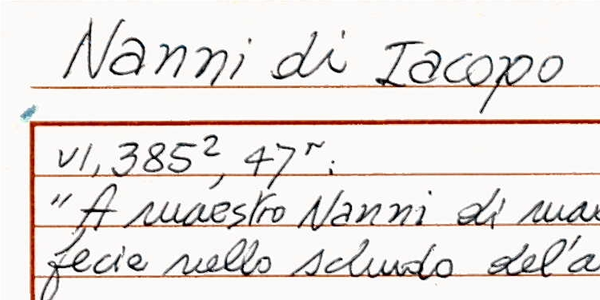 Nanni di Iacopo
VI, 385², 47ʳ:
"A maestro Nanni di
fecie nello scudo del'a